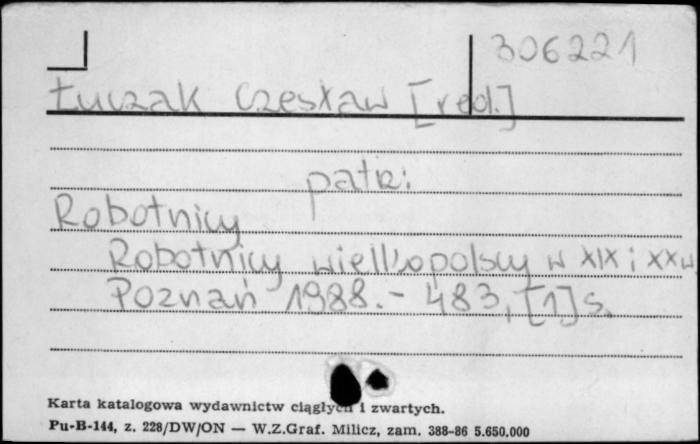 306221
Łuczak Czesław [red.]
patrz:
Robotnicy
Robotnicy wielkopolscy w XIX i XX w
Poznań 1988. - 483, [1] s.
Karta katalogowa wydawnictw ciągłych i zwartych.
Pu-B-144, z. 228/DW/ON — W.Z.Graf. Milicz, zam. 388-86 5.650,000